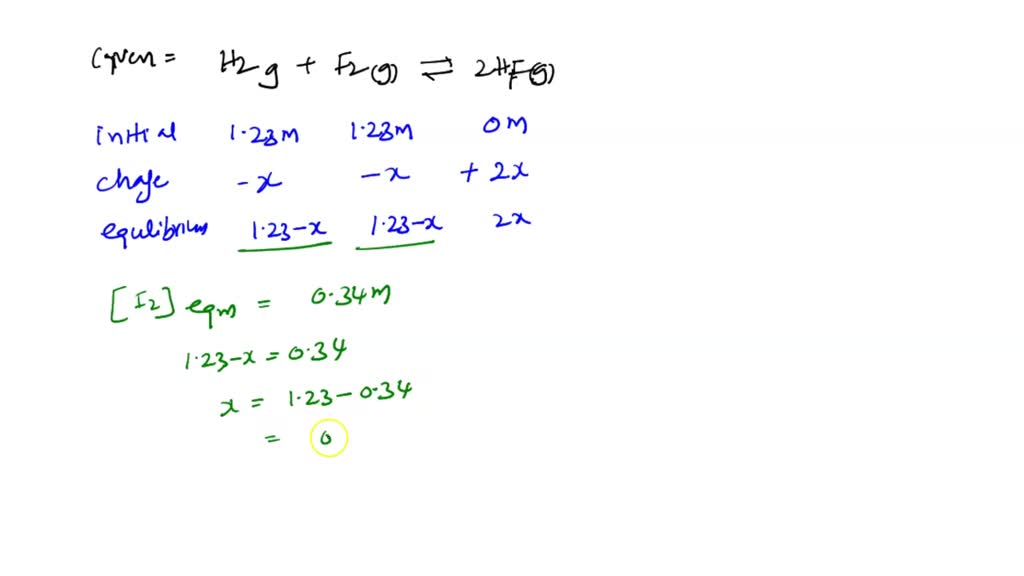 Given = H2 g + F2(g) ⇌ 2HF(g)
initial 1.23M 1.23M 0M
chage -x -x + 2x
equlibrium 1.23-x 1.23-x 2x
[I2] eqm = 0.34M
1.23-x = 0.34
x = 1.23-0.34
= 0